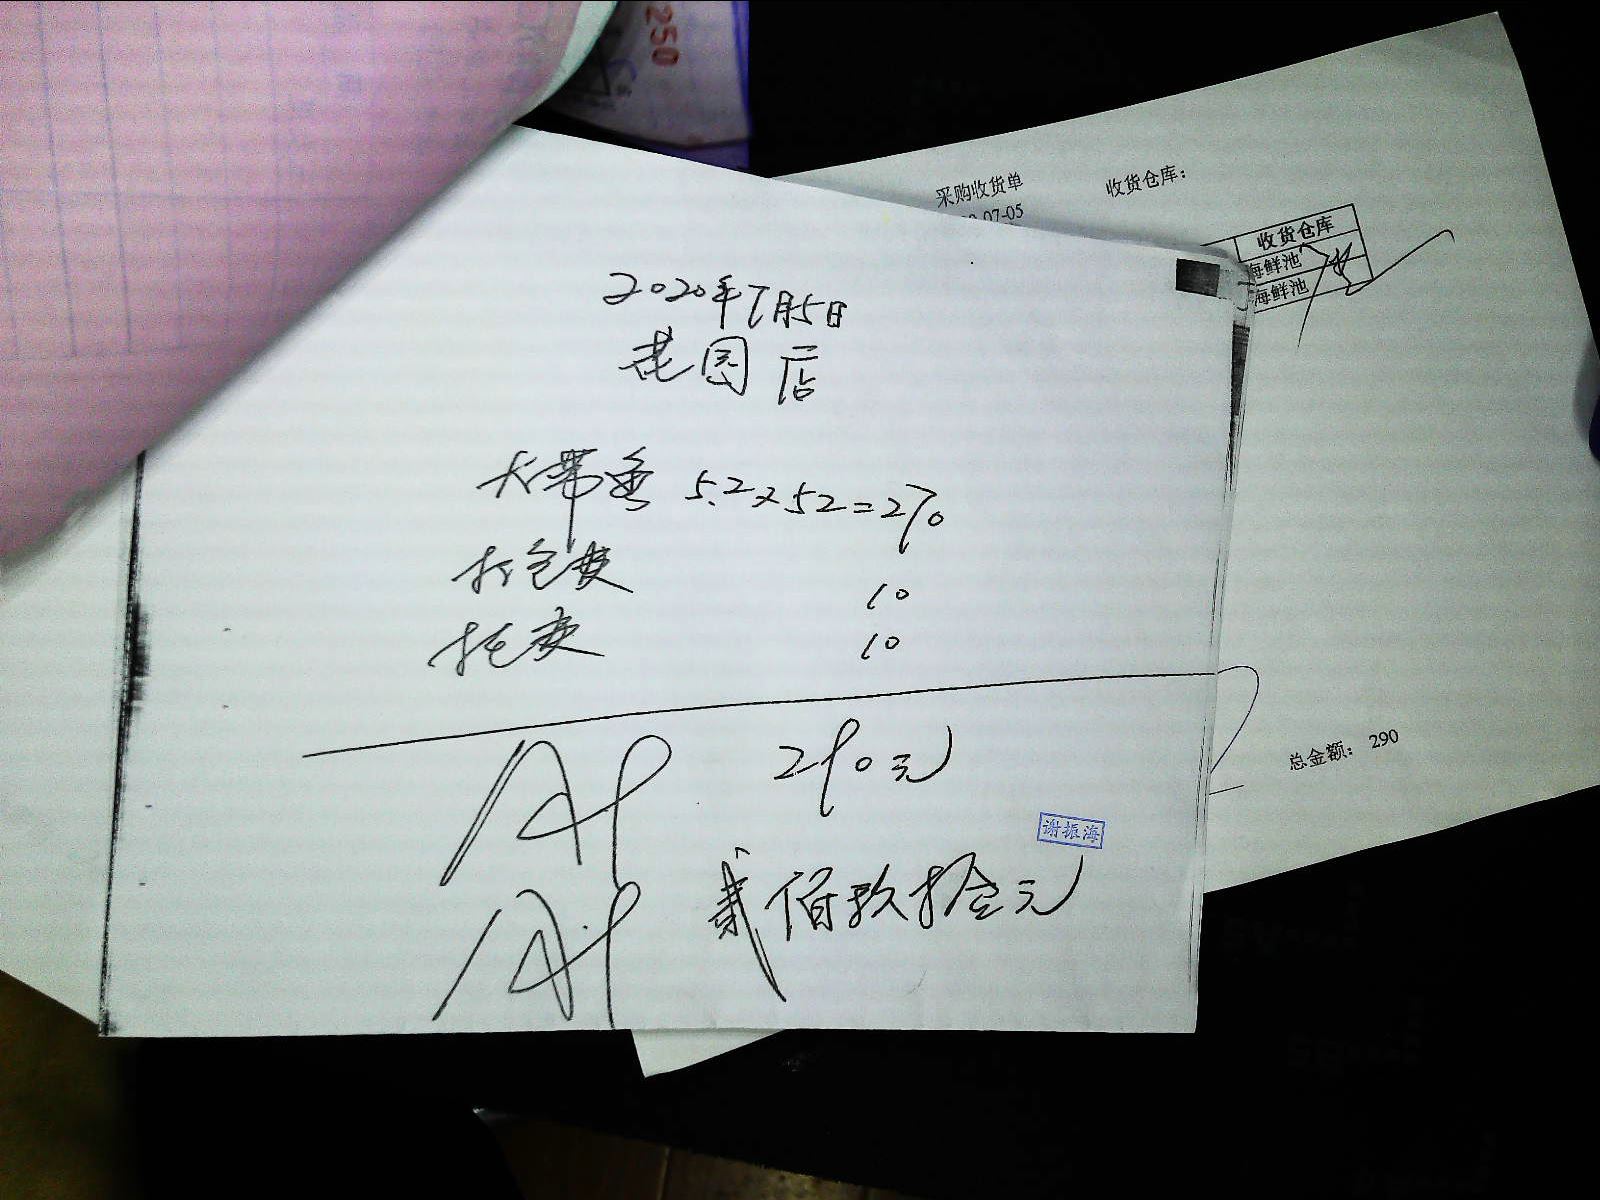 250
采购收货单
收货仓库：
07-05
收货仓库
海鲜池
海鲜池
2020年7月5日
花园店
大带鱼 5.2×52=270
打包费 10
托费 10
290元
谢振海
贰佰玖拾元
总金额： 290